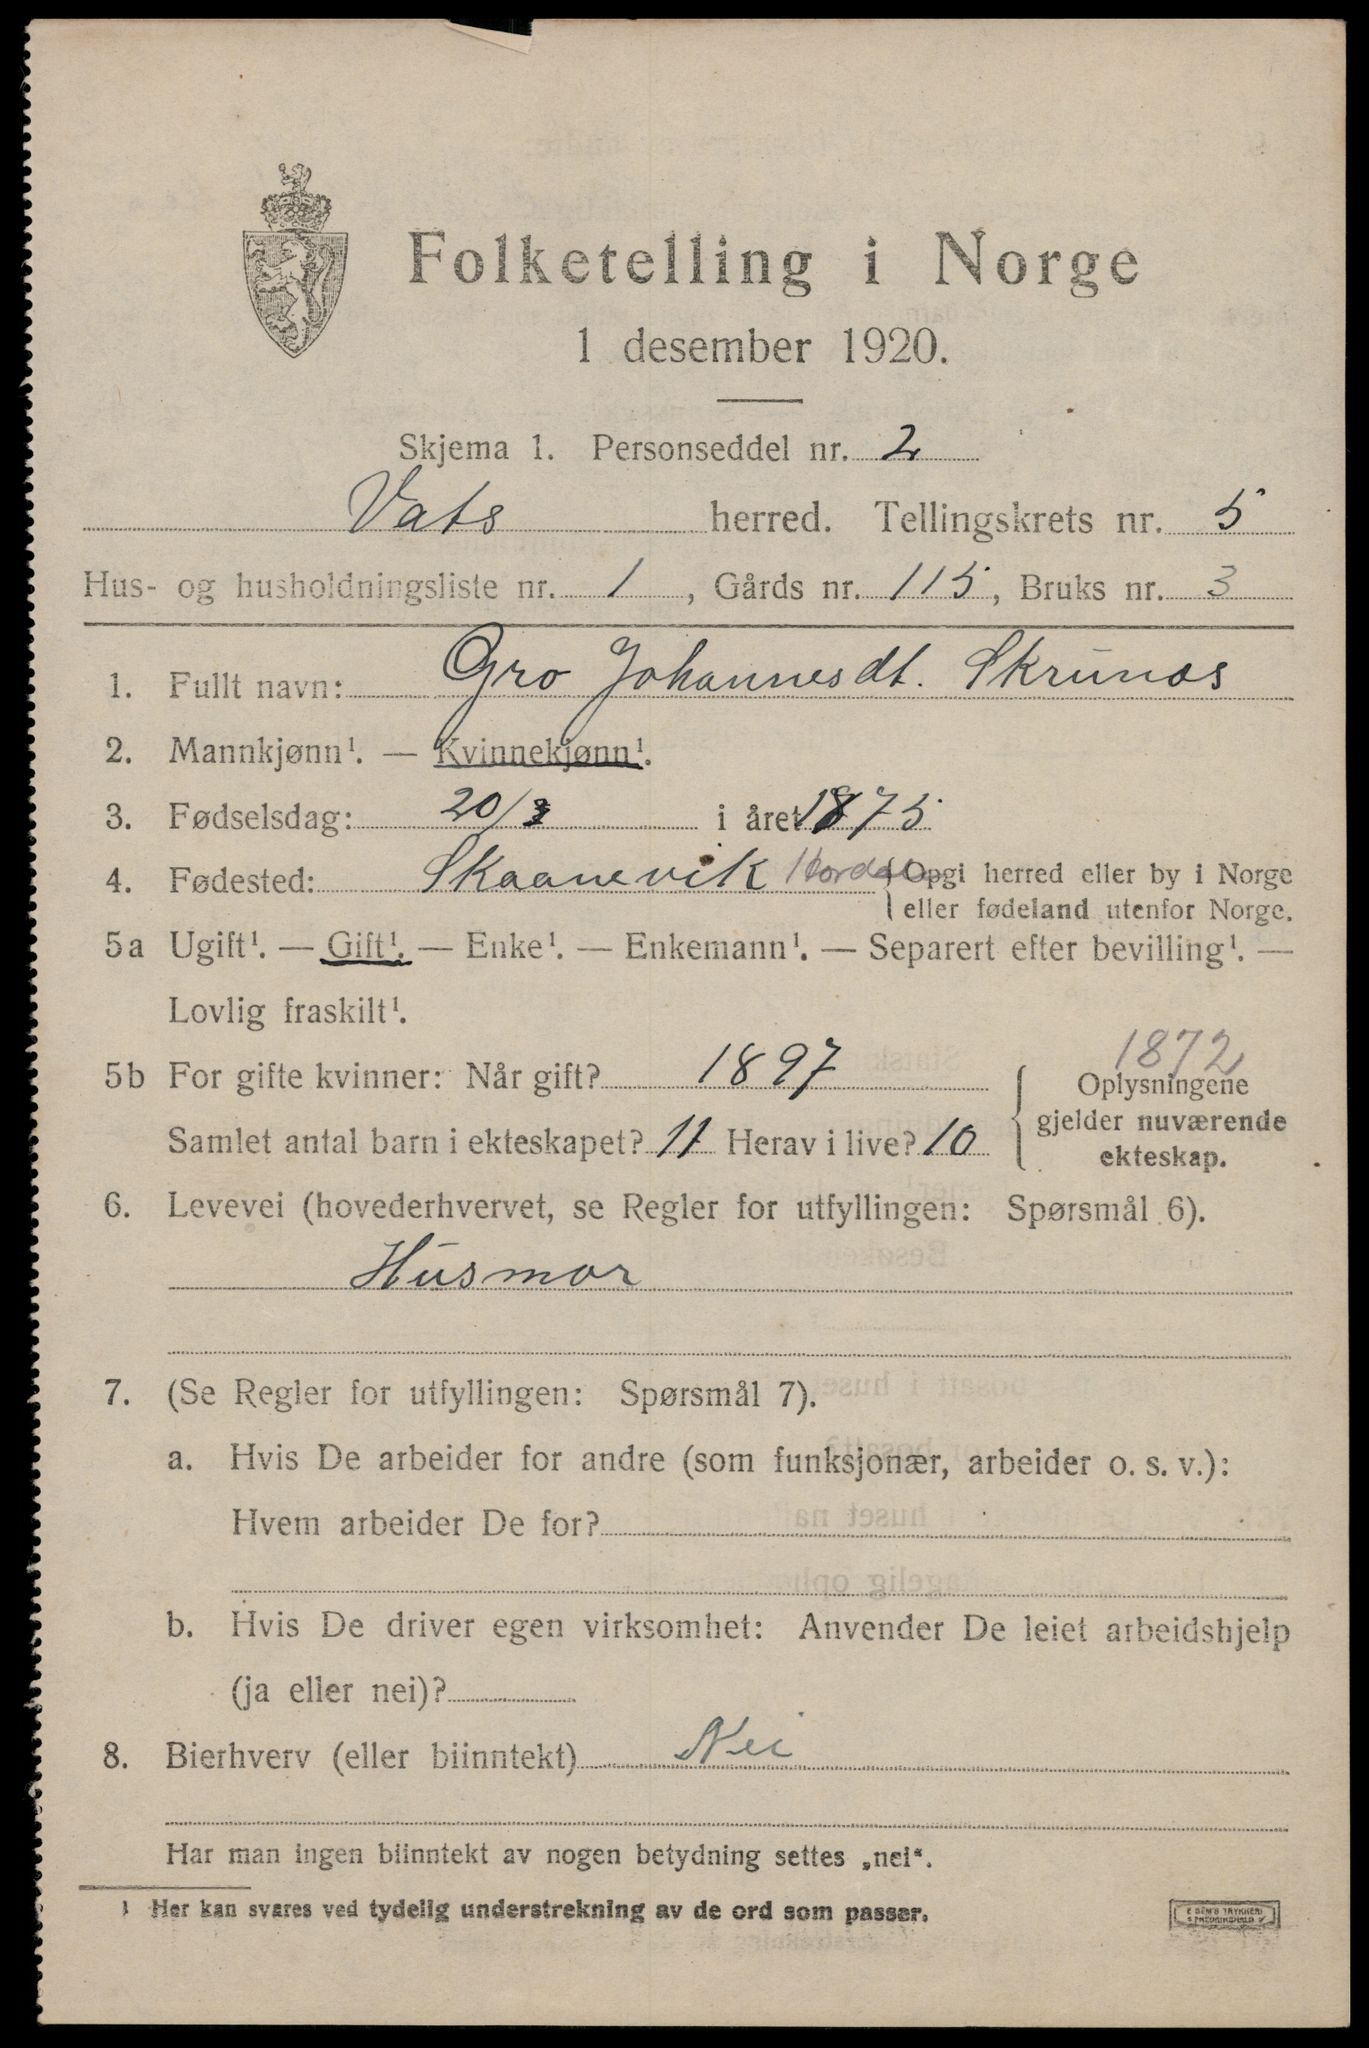 Folketelling i Norge
1 desember 1920.
Skjema 1. Personseddel nr. 2
Vats herred. Tellingskrets nr. 5
Hus- og husholdningsliste nr. 1, Gårds nr. 115, Bruks nr. 3
1. Fullt navn: Gro Johannesdt. Skrunes
2. Mannkjønn¹. — Kvinnekjønn¹.
3. Fødselsdag: 20/3 i året 1875
4. Fødested: Skaanevik Hordal { Opgi herred eller by i Norge
eller fødeland utenfor Norge.
5a Ugift¹. — Gift¹. — Enke¹. — Enkemann¹. — Separert efter bevilling¹. —
Lovlig fraskilt¹.
1872
5b For gifte kvinner: Når gift? 1897
Samlet antal barn i ekteskapet? 11 Herav i live? 10
Oplysningene
gjelder nuværende
ekteskap.
6. Levevei (hovederhvervet, se Regler for utfyllingen: Spørsmål 6).
Husmor
7. (Se Regler for utfyllingen: Spørsmål 7).
a. Hvis De arbeider for andre (som funksjonær, arbeider o. s. v.):
Hvem arbeider De for?
b. Hvis De driver egen virksomhet: Anvender De leiet arbeidshjelp
(ja eller nei)?
8. Bierhverv (eller biinntekt) Nei
Har man ingen biinntekt av nogen betydning settes „nei“.
¹ Her kan svares ved tydelig understrekning av de ord som passer.